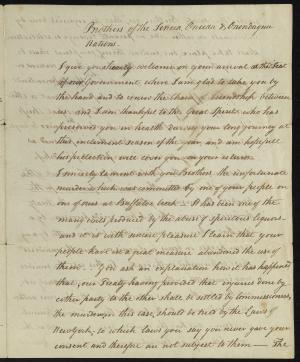 Brothers of the Seneca, Oneida & Onondagua
Nations.
I give you hearty welcome on your arrival at the Seat
of our Government, where I am glad to take you by
the hand and to renew the Chain of friendship between
us, and I am thankful to the Great Spirit who has
preserved you in health during your long journey at
this inclement season of the year and am hopeful
his protection will cover you on your return
I sincerely lament with you Brothers the unfortunate
murder which was committed by one of your people on
one of ours at Buffaloe Creek. It has been one of the
many evils produced by the abuse of spiritous liquors.
and it is with sincere pleasure I learn that your
people have in a great measure abandoned the use of
them. You ask an explanation how it has happened
that, our Treaty having provided that injuries done by
either party to the other shall be settled by Commissioners,
the murder, in this case, should be tried by the Laws of
New York, to which Laws you say you never gave your
consent and therefore are not subject to them — The